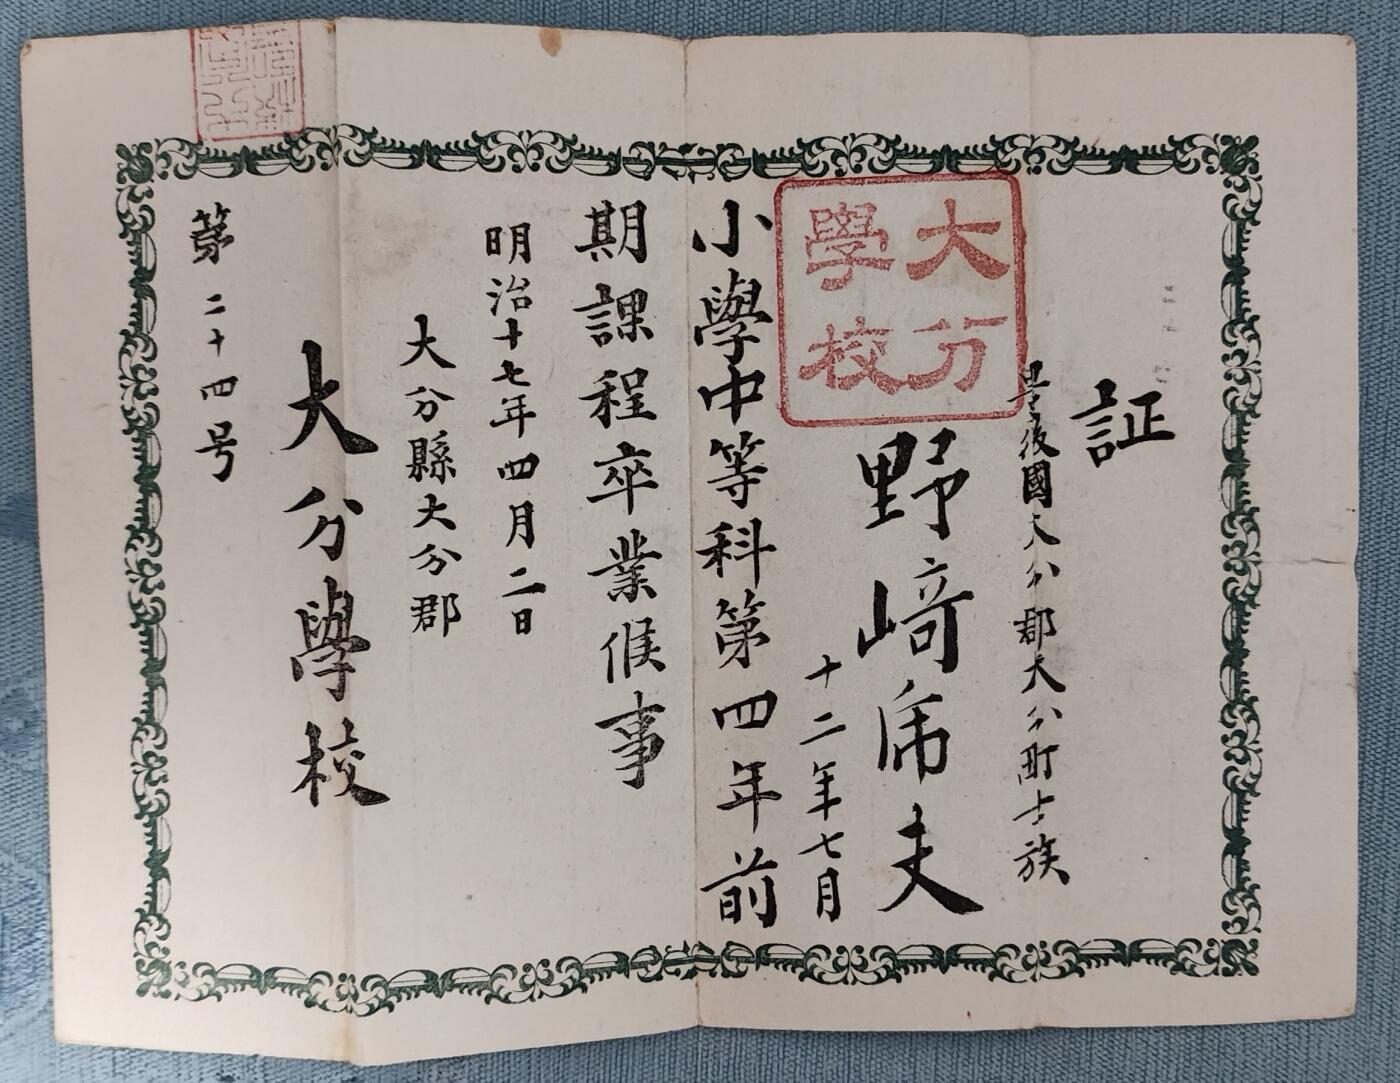 証
豊後國大分郡大分町士族
野﨑席夫
十二年七月
大分
學校
小學中等科第四年前
期課程卒業候事
明治十七年四月二日
大分縣大分郡
大分學校
第二十四号